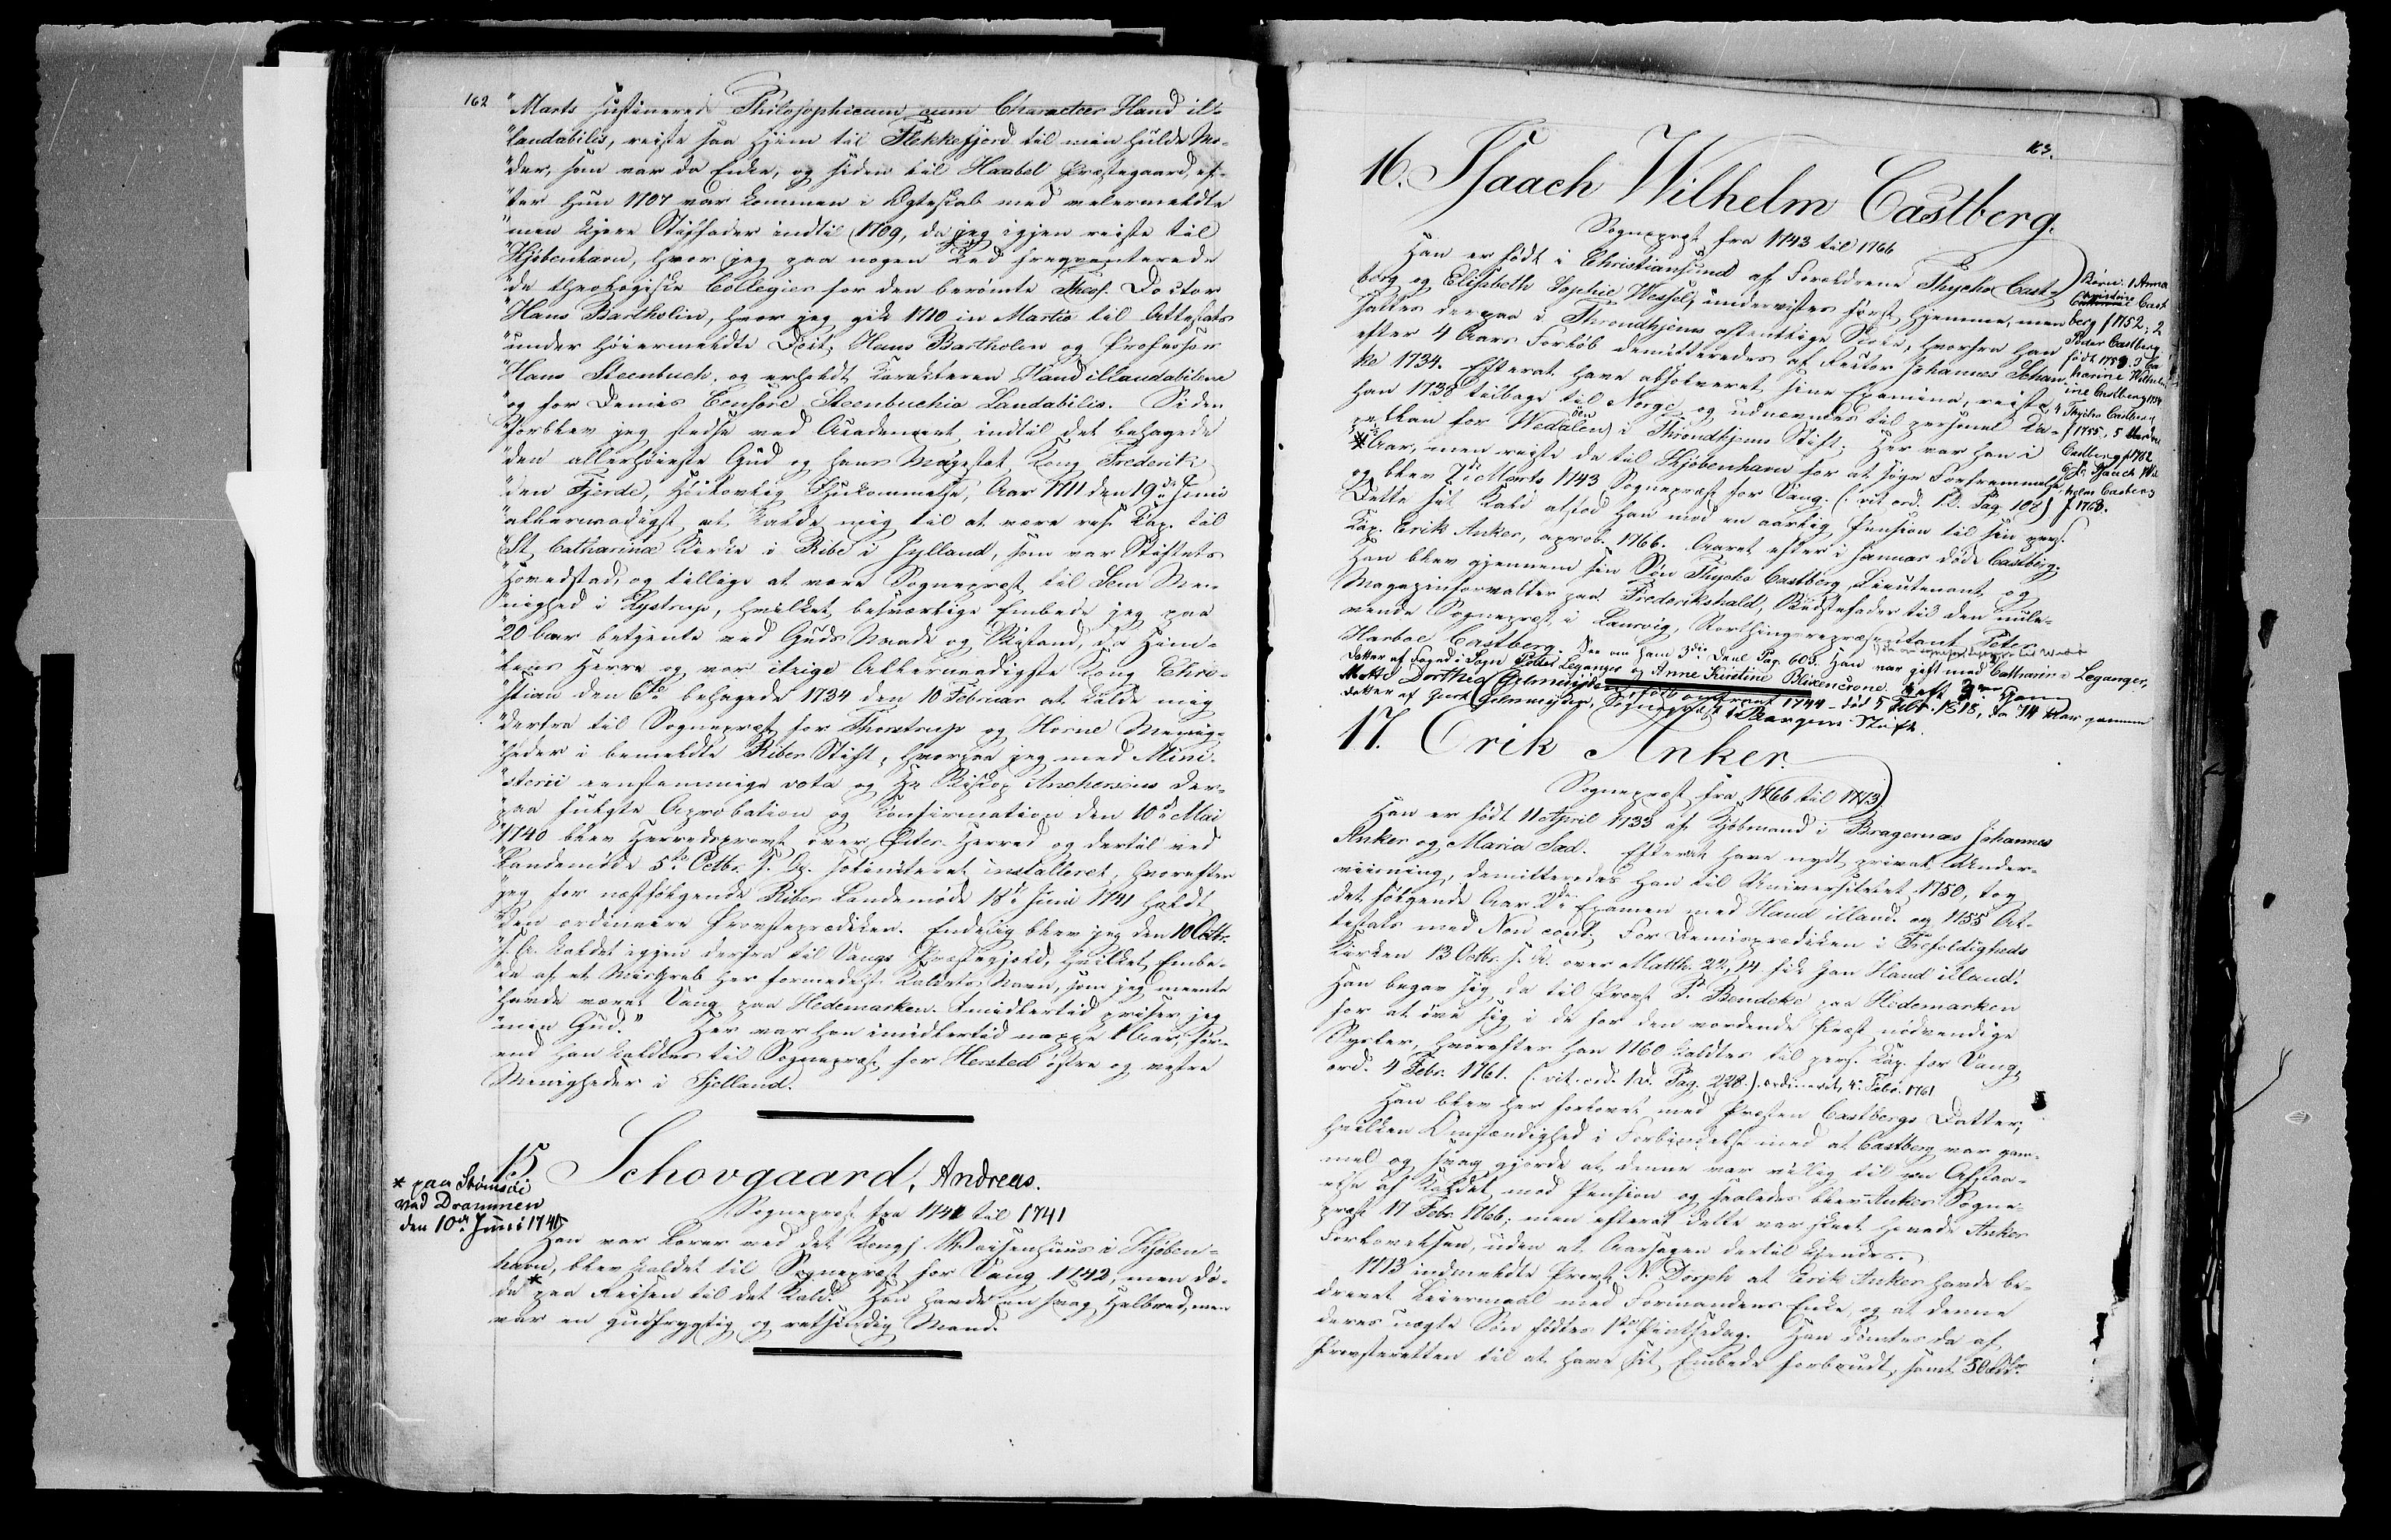 162
"Marts sustinered Philosophicum cum Character Haud il-
"laudabilis, reiste saa hjem til Flekkefjord til min hulde Mo-
"der, som var da Enke, og siden til Haabel Præstegaard, ef-
"ter hun 1707 var kommen i Ægteskab med velermeldte
"men kjære Stiffader indtil 1709, da jeg igjen reiste til
"Kjøbenhavn, hvor jeg paa nogen Tid freqventerede
"de theologiske Collegier for den berömte Theol. Doctor
"Hans Bartholin, hvor jeg gik 1710 in Martio til Attestats
"under høiermeldte Doct. Hans Bartholin og Professor
"Hans Steenbuch, og erholdt Karakteren Haud illaudabilem
"og for Demis Censore Steenbuchio Laudabilis. Siden
"forblev jeg stedse ved Academiet indtil det behagede
"den allerhøieste Gud og hans Majestæt Kong Frederik
"den Fjerde, Høilovlig Ihukommelse, Aar 1711 den 19de Juni
"allernaadigst at kalde mig til at være res. Kap. til
"St. Catharinæ Kirke i Ribe i Jylland, som var Stiftets
"Hovedstad, og tillige at være Sognepræst til Sem Me-
"nighed i Kystrup, hvilket besværlige Embede jeg paa
"20 Aar betjente ved Guds Naade og Bistand, da Him-
"lens Herre og vor itzige Allernaadigste Kong Chri-
"stian den 6te behagede 1734 den 10 Februar at kalde mig
"derfra til Sognepræst for Thorstrup og Horne Menig-
"heder i bemeldte Riber Stift, hvorpaa jeg med Mini-
"sterii eenstemmige vota og Hr. Biskop Anchersons der-
"paa fulgte Aprobation og Konfirmation den 10de Mai
"1740 blev Herredsprovst over Øster Herred og dertil ved
"Landemøde 5te Octbr. s. A. solenniteret installeret, hvorefter
"jeg for næstfølgende Riber Landemøde 18de Juni 1741 holdt
"den ordinære Provsteprædiken. Endelig blev jeg den 10 Octbr.
"s. A. kaldet igjen derfra til Vangs Præstegjæld, hvilket Embe-
"de af et Misgreb her formedelst Kaldets Navn, som jeg meente
"havde været Vang paa Hedemarken. Imidlertid priser jeg
"min Gud." Her var han imidlertid neppe 1 Aar, för-
end han kaldtes til Sognepræst for Hersted østre og vestre
Menigheder i Sjelland.
15 Schovgaard, Andreas.
* paa Strömsöe
ved Drammen
den 10de Juni 1741
Sognepræst fra 1741 til 1741
Han var Lærer ved det Kongl. Waisenhuus i Kjøben-
havn, blev kaldet til Sognepræst for Vang 1742, men dö-
de* paa Reisen til det Kald. Han havde en svag Helbred, men
var en gudfrygtig og retsindig Mand.
163.
16. Isaach Wilhelm Castberg.
Sognepræst fra 1743 til 1766
Han er født i Christiansund af Forældrene Thycho Cast-
berg og Elisabeth Sophie Wessel, undervistes først hjemme, men
sattes derpaa i Throndhjems offentlige Skole, hvorfra han
efter 4 Aars Forløb demitteredes af Rector Johannes Schan-
ke 1734. Efterat have absolveret sine Examina, reiste
han 1738 tilbage til Norge og udnævntes til personel Ka-
pellan for Wedalen i Throndhjems Stift. Her var han i
* Aar, men reiste da til Kjøbenhavn for at søge Forfremmelse
og blev 7de Marts 1743 Sognepræst for Vang. (: vit. ord. 1D. Pag. 108)
Dette sit Kald afstod han mod en aarlig Pension til sin pers.
Kap. Erik Anker, aprob. 1766. Aaret efter i Januar døde Castberg.
Han blev gjennem sin Søn Thycho Castberg, Lieutenant og
Magazinforvalter paa Frederikshald, Bedstefader til den nule-
vende Sognepræst i Laurvig, Storthingsrepræsentant Peter
Harboe Castberg. See om ham 3die Deel Pag. 603. Han var gift med Catharine Leganger,
Datter af Foged i Sogn Peder Leganger og Anne Kirstine Blixencrone. Gift 2den Gang
Mette Dorthea Gelmeyden
Datter af Giert Gelmeyden, Sognepræst til Bergens Stift.
født omtrent 1744 – død 5 Febr. 1818, da 74 Aar gammel
Børn: 1 Anna
Christine Cast
berg f 1752; 2
Peder Castberg
født 1753. 3 Ca
tharine Wilhelm
ine Castberg 1754
4 Thycho Castberg
f 1755, 5
Castberg f 1762
6 Isaach Wil
helm Castberg
f 1763.
17. Erik Anker
Sognepræst fra 1766 til 1773
Han er født 11 April 1733 af Kjøbmand i Bragernæs Johannes
Anker og Maria Sad. Efterat have nydt privat Under-
viisning, demitteredes han til Universitetet 1750, tog
det følgende Aar 2den Examen med Haud illaud. og 1755 At-
testats med Non cont. For Demisprædiken i Trefoldigheds
Kirken 13 Octbr. s. A. over Matth. 22, 14 fik han Haud illaud.
Han begav sig da til Provst P. Bendeke paa Hedemarken
for at öve sig i de for den vordende Præst nödvendige
Sysler, hvorefter han 1760 kaldtes til pers. Kap. for Vang,
ord. 4 Febr. 1761. (: vit. ord. 1D. Pag. 228.) ordineret 4de Febr. 1761
Han blev her forlovet med Præsten Castbergs Datter,
hvilken Omstændighed i Forbindelse med at Castberg var gam-
mel og svag gjorde at denne var villig til en Afstaa-
else af Kaldet mod Pension og saaledes blev Anker Sogne-
præst 17 Febr. 1766; men efterat dette var skeet hævede Anker
Forlovelsen, uden at Aarsagen dertil kjendes.
1773 indmeldte Provst N. Dorph at Erik Anker havde be-
drevet Leiermaal med Formandens Enke, og at denne
deres uægte Søn fødtes 1ste Pintsedag. Han dömtes da af
Provsteretten til at have sit Embede forbrudt, samt 50 Rdr.